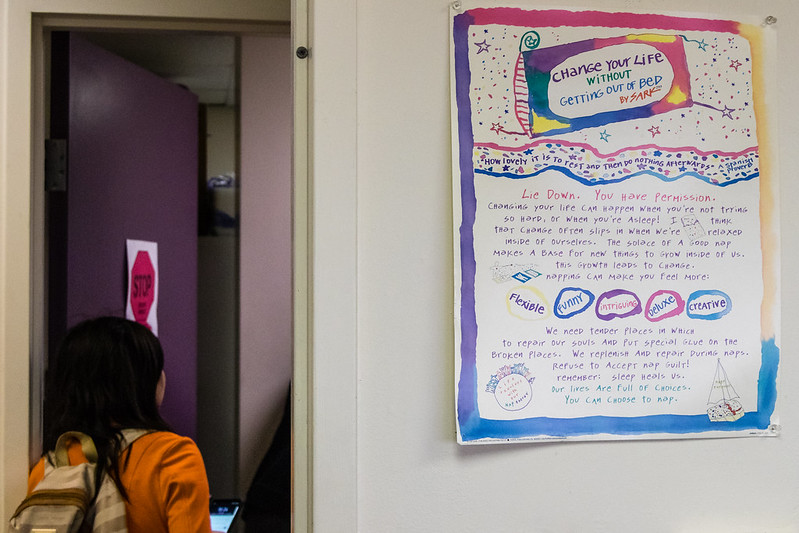 STOP
CHANGE YOUR LIFE
WITHOUT
GETTING OUT OF BED
BY SARK
"HOW LOVELY IT IS TO REST AND THEN DO NOTHING AFTERWARDS" A SPANISH PROVERB
LIE DOWN. YOU HAVE PERMISSION.
CHANGING YOUR LIFE CAN HAPPEN WHEN YOU'RE NOT TRYING
SO HARD, OR WHEN YOU'RE ASLEEP! I THINK
THAT CHANGE OFTEN SLIPS IN WHEN WE'RE RELAXED
INSIDE OF OURSELVES. THE SOLACE OF A GOOD NAP
MAKES A BASE FOR NEW THINGS TO GROW INSIDE OF US.
THIS GROWTH LEADS TO CHANGE.
NAPPING CAN MAKE YOU FEEL MORE:
FLEXIBLE FUNNY INTRIGUING DELUXE CREATIVE
WE NEED TENDER PLACES IN WHICH
TO REPAIR OUR SOULS AND PUT SPECIAL GLUE ON THE
BROKEN PLACES. WE REPLENISH AND REPAIR DURING NAPS.
REFUSE TO ACCEPT NAP GUILT!
REMEMBER: SLEEP HEALS US.
OUR LIVES ARE FULL OF CHOICES.
YOU CAN CHOOSE TO NAP.